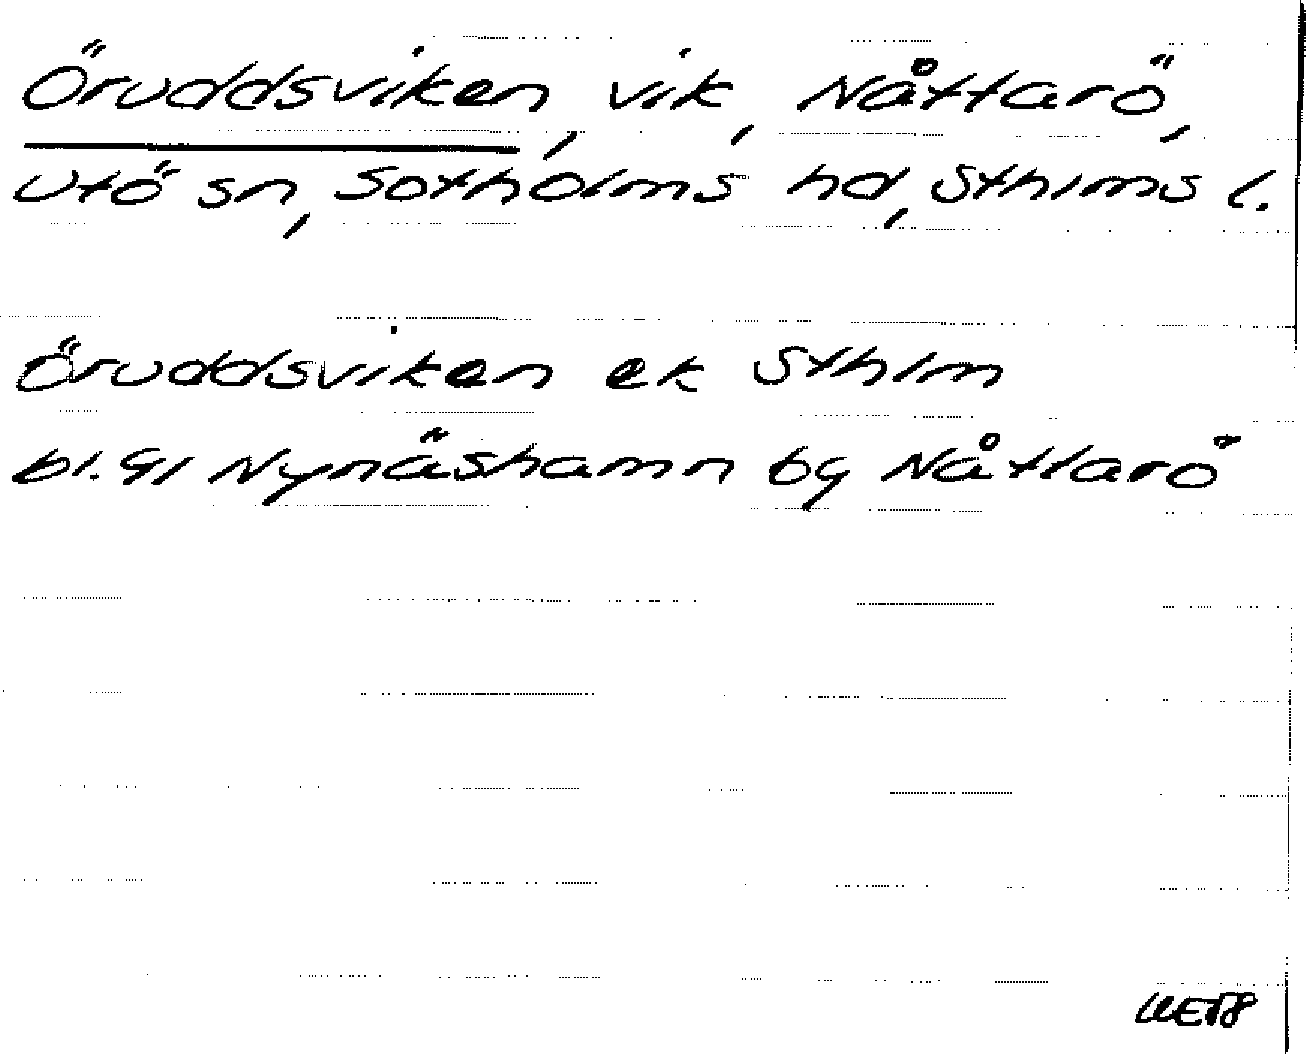 Öruddsviken, vik, Nåttarö,
Utö sn, Sotholms hd, Sthlms l.
Öruddsviken ek Sthlm
bl. 91 Nynäshamn bg Nåttarö